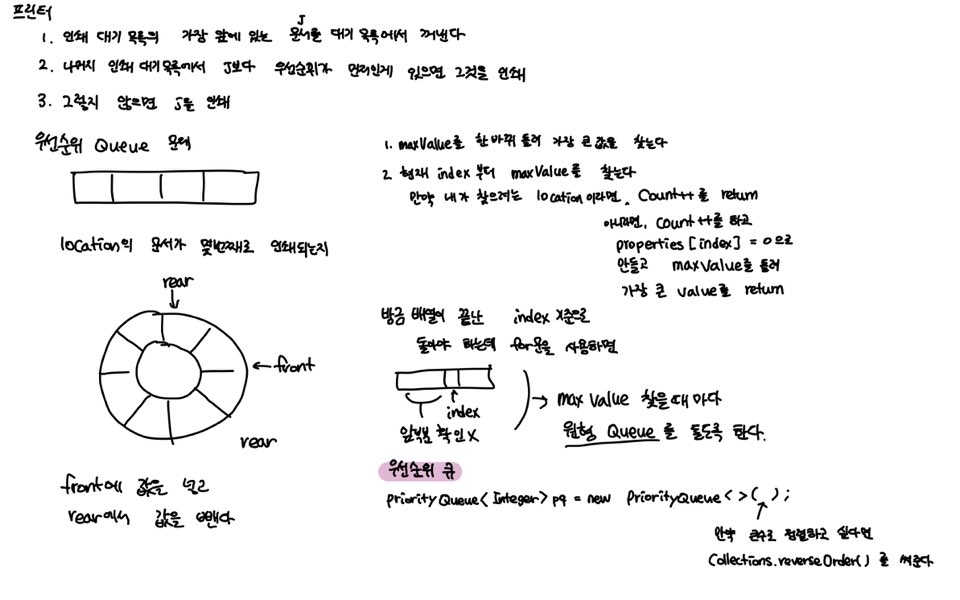 프린터
1. 인쇄 대기 목록의 가장 앞에 있는 문서를 대기 목록에서 꺼낸다
J
2. 나머지 인쇄 대기 목록에서 J보다 우선순위가 한개라도 있으면 그것을 인쇄
3. 그렇지 않으면 J를 인쇄
우선순위 Queue 문제
location의 문서가 몇번째로 인쇄되는지
rear
front
rear
front에 값을 넣고
rear에서 값을 뺀다
1. maxValue를 한바퀴 돌려 가장 큰 값을 찾는다
2. 현재 index 부터 maxValue를 찾는다
만약 내가 찾으려는 location 이라면, Count++를 return
아니라면, Count++를 하고
properties [index] = 0으로
만들고 maxValue를 돌려
가장 큰 value를 return
방금 배열이 끝난 index 기준으로
돌아야 하는데 for문을 사용하면
index
앞부분 확인 X
max value 찾을때 마다
원형 Queue 를 돌도록 한다.
우선순위 큐
PriorityQueue<Integer> pq = new PriorityQueue<>( );
만약 큰수로 정렬하고 싶다면
Collections.reverseOrder() 를 써준다